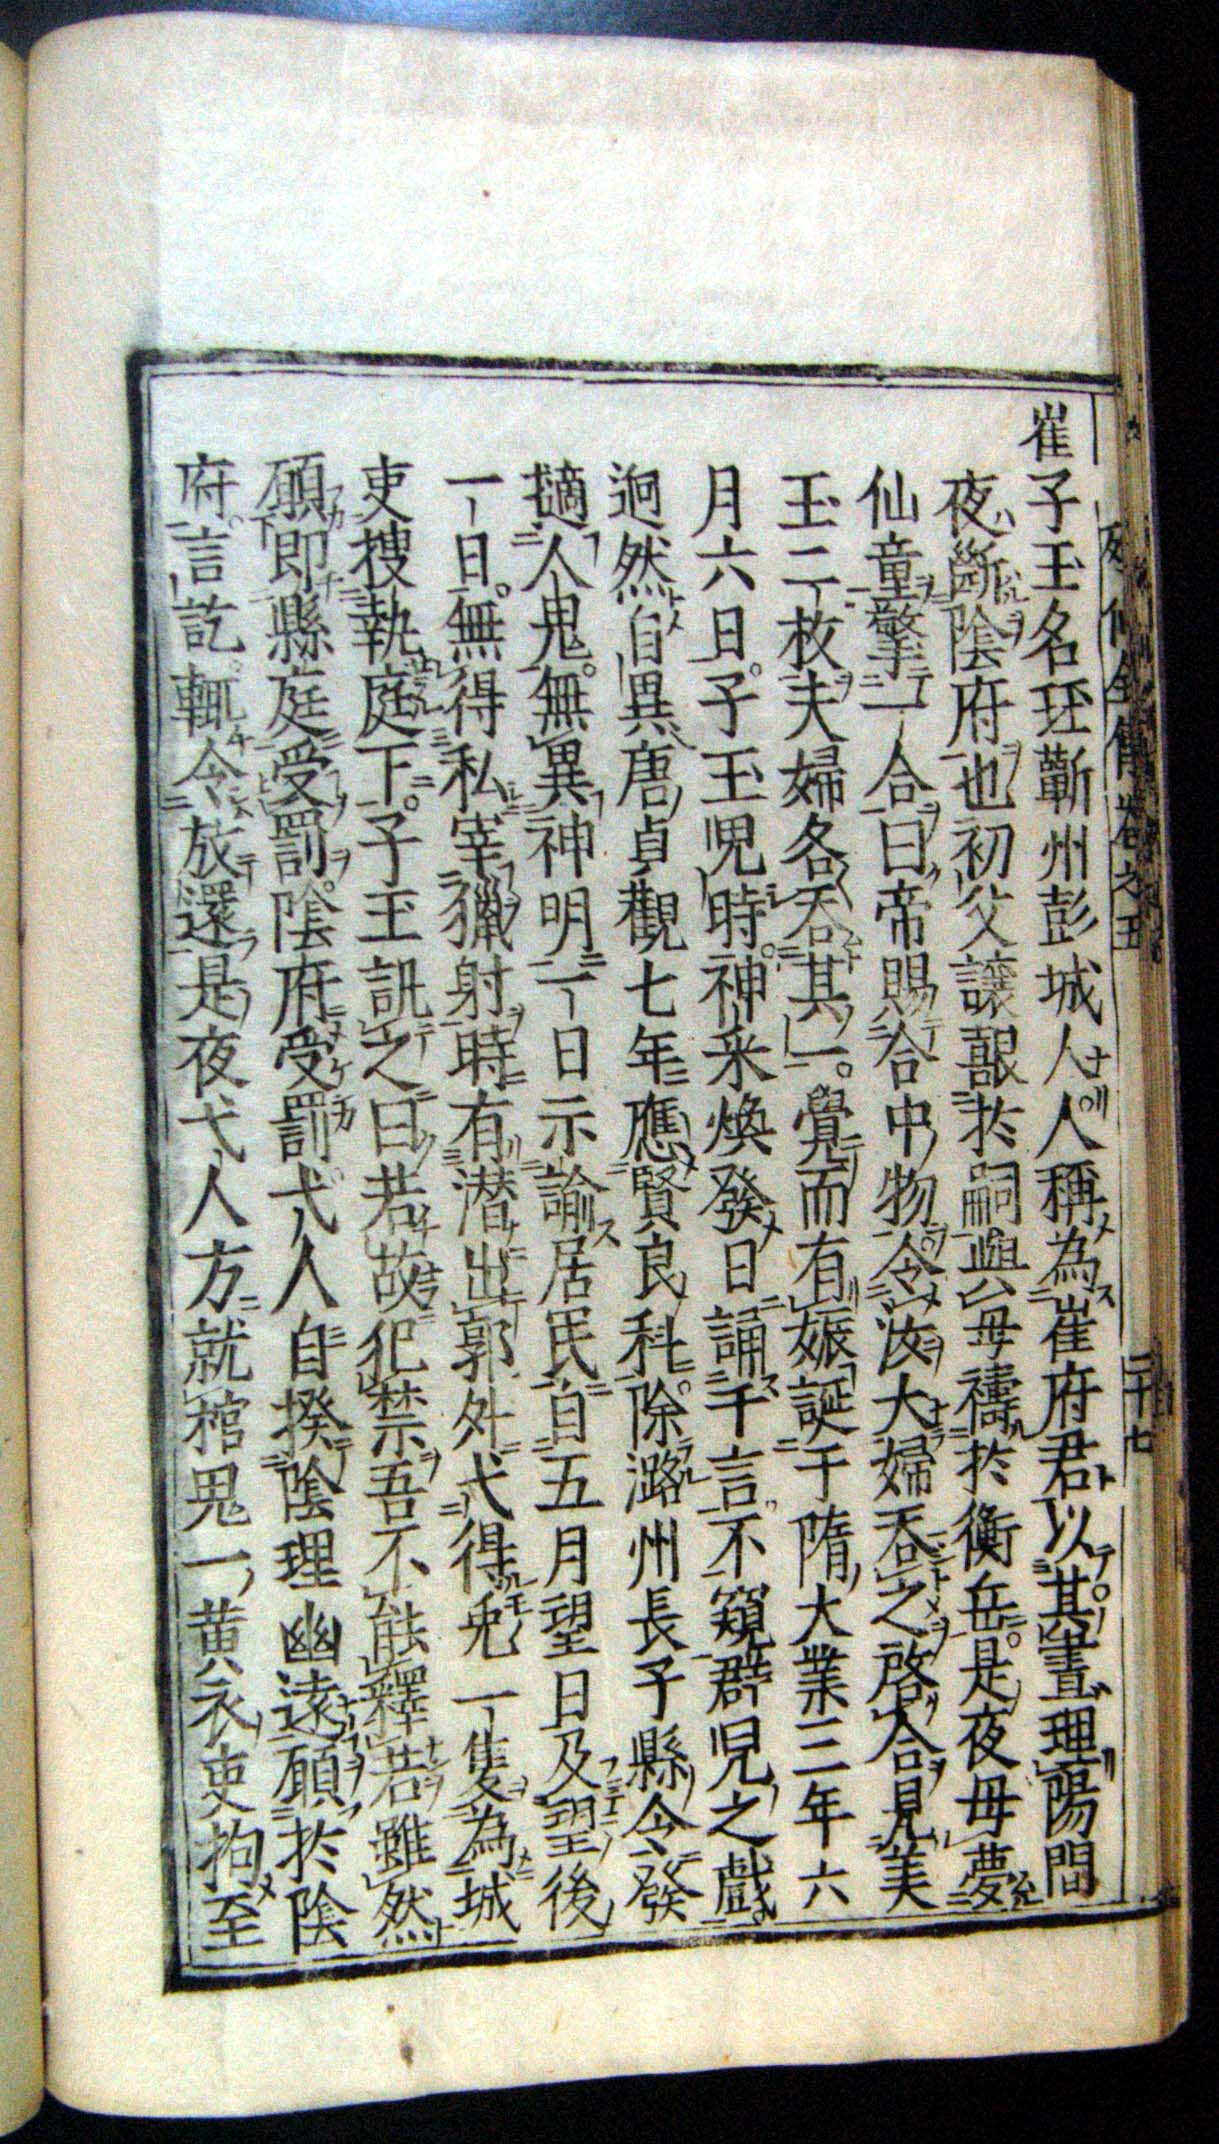 崔子玉名珏蘄州彭城人人稱為崔府君以其晝理陽間
夜斷陰府也初父讓艱於嗣與母禱於衡岳是夜母夢
仙童擎一合曰帝賜合中物令汝夫婦吞之啓合見美
玉二枚夫婦各吞其一覺而有娠誕于隋大業三年六
月六日子玉兒時神采煥發日誦千言不窺群兒之戲
迥然自異唐貞觀七年應賢良科除潞州長子縣令發
擿人鬼無異神明一日示諭居民自五月望日及望後
一日無得私宰獵射時有潛出郭外弋得兎一隻為城
吏搜執庭下子玉訊之曰若故犯禁吾不能釋若雖然
願即縣庭受罰陰府受罰弋人自揆陰理幽遠願於陰
府言訖輒令放還是夜弋人方就榻見一黃衣吏拘至
列仙全傳卷之五
二十七